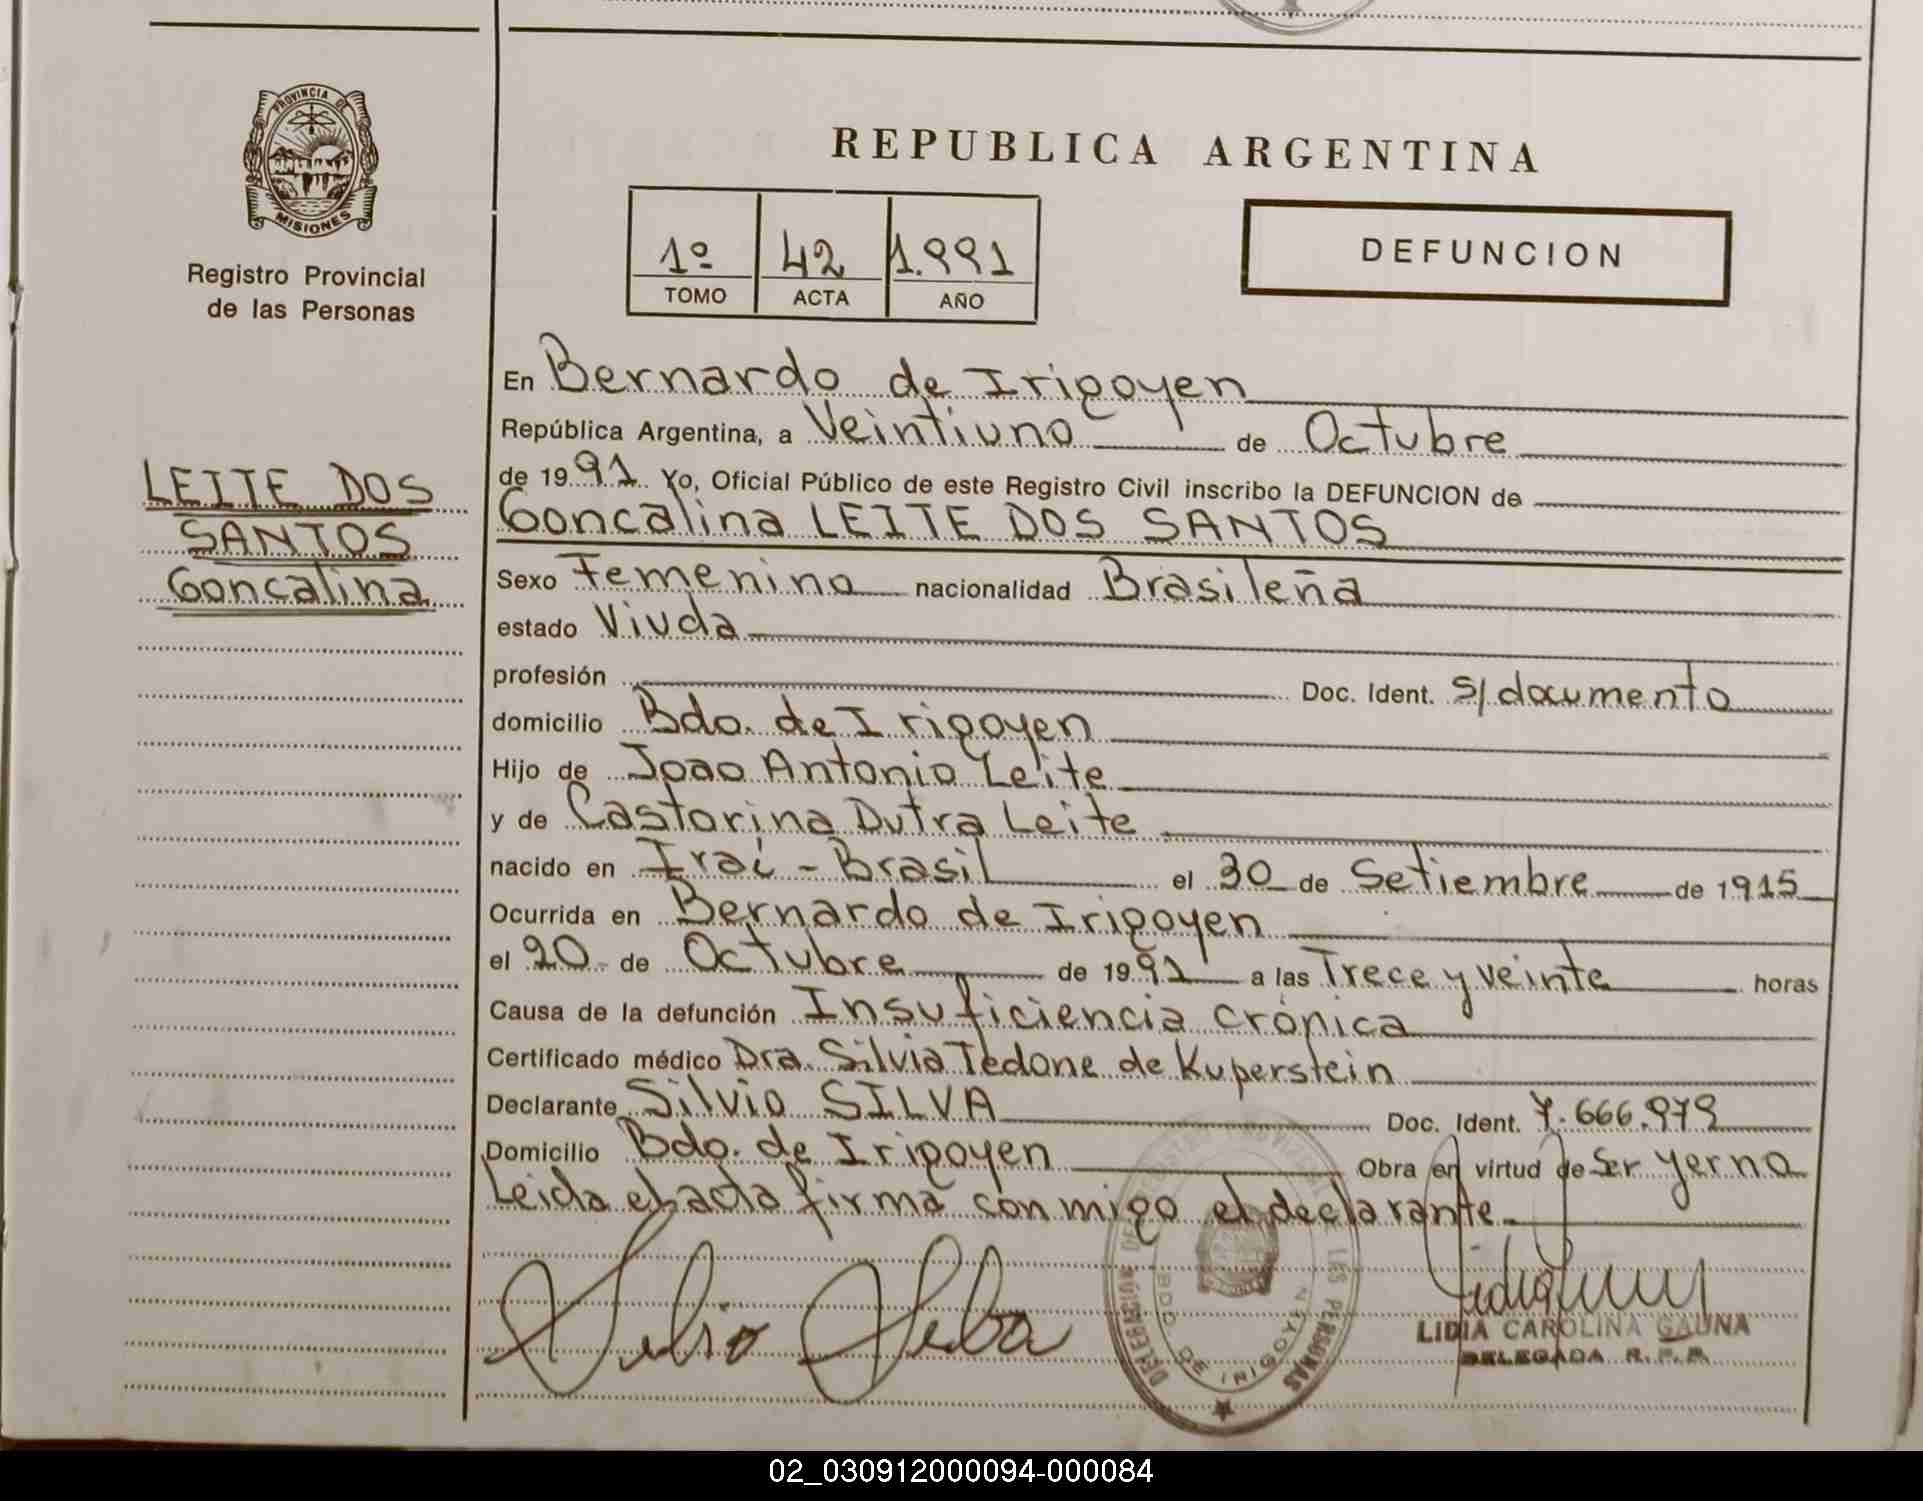 PROVINCIA DE
MISIONES
Registro Provincial
de las Personas
LEITE DOS
SANTOS
Goncalina
REPUBLICA ARGENTINA
1º 42 1.991
TOMO ACTA AÑO
DEFUNCION
En Bernardo de Irigoyen
República Argentina, a Veintiuno de Octubre
de 1991 Yo, Oficial Público de este Registro Civil inscribo la DEFUNCION de
Goncalina LEITE DOS SANTOS
Sexo Femenino nacionalidad Brasileña
estado Viuda
profesión Doc. Ident. S/documento
domicilio Bdo. de Irigoyen
Hijo de Joao Antonio Leite
y de Castorina Dutra Leite
nacido en Iraí - Brasil el 30 de Setiembre de 1915
Ocurrida en Bernardo de Irigoyen
el 20 de Octubre de 1991 a las Trece y veinte horas
Causa de la defunción Insuficiencia crónica
Certificado médico Dra. Silvia Tedone de Kuperstein
Declarante Silvio SILVA Doc. Ident. 7.666.979
Domicilio Bdo. de Irigoyen Obra en virtud de Ser yerno
Leida el acta firma conmigo el declarante.
LIDIA CAROLINA GAUNA
DELEGADA R.P.P.
BDO. DE IRIGOYEN
02_030912000094-000084